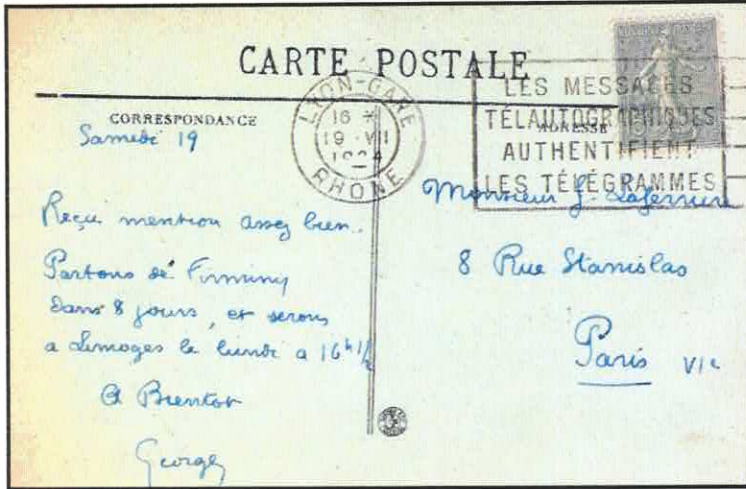 CARTE POSTALE
CORRESPONDANCE
ADRESSE
LYON-GARE
16 *
19 · VII
1924
RHONE
LES MESSAGES
TÉLAUTOGRAPHIQUES
AUTHENTIFIENT
LES TÉLÉGRAMMES
Samedi 19
Reçu mention assez bien.
Partons de Firminy
dans 8 jours, et serons
a Limoges le lundi a 16h 1/2
A Bientot
Georges
Monsieur J. Laferrière
8 Rue Stanislas
Paris VIe